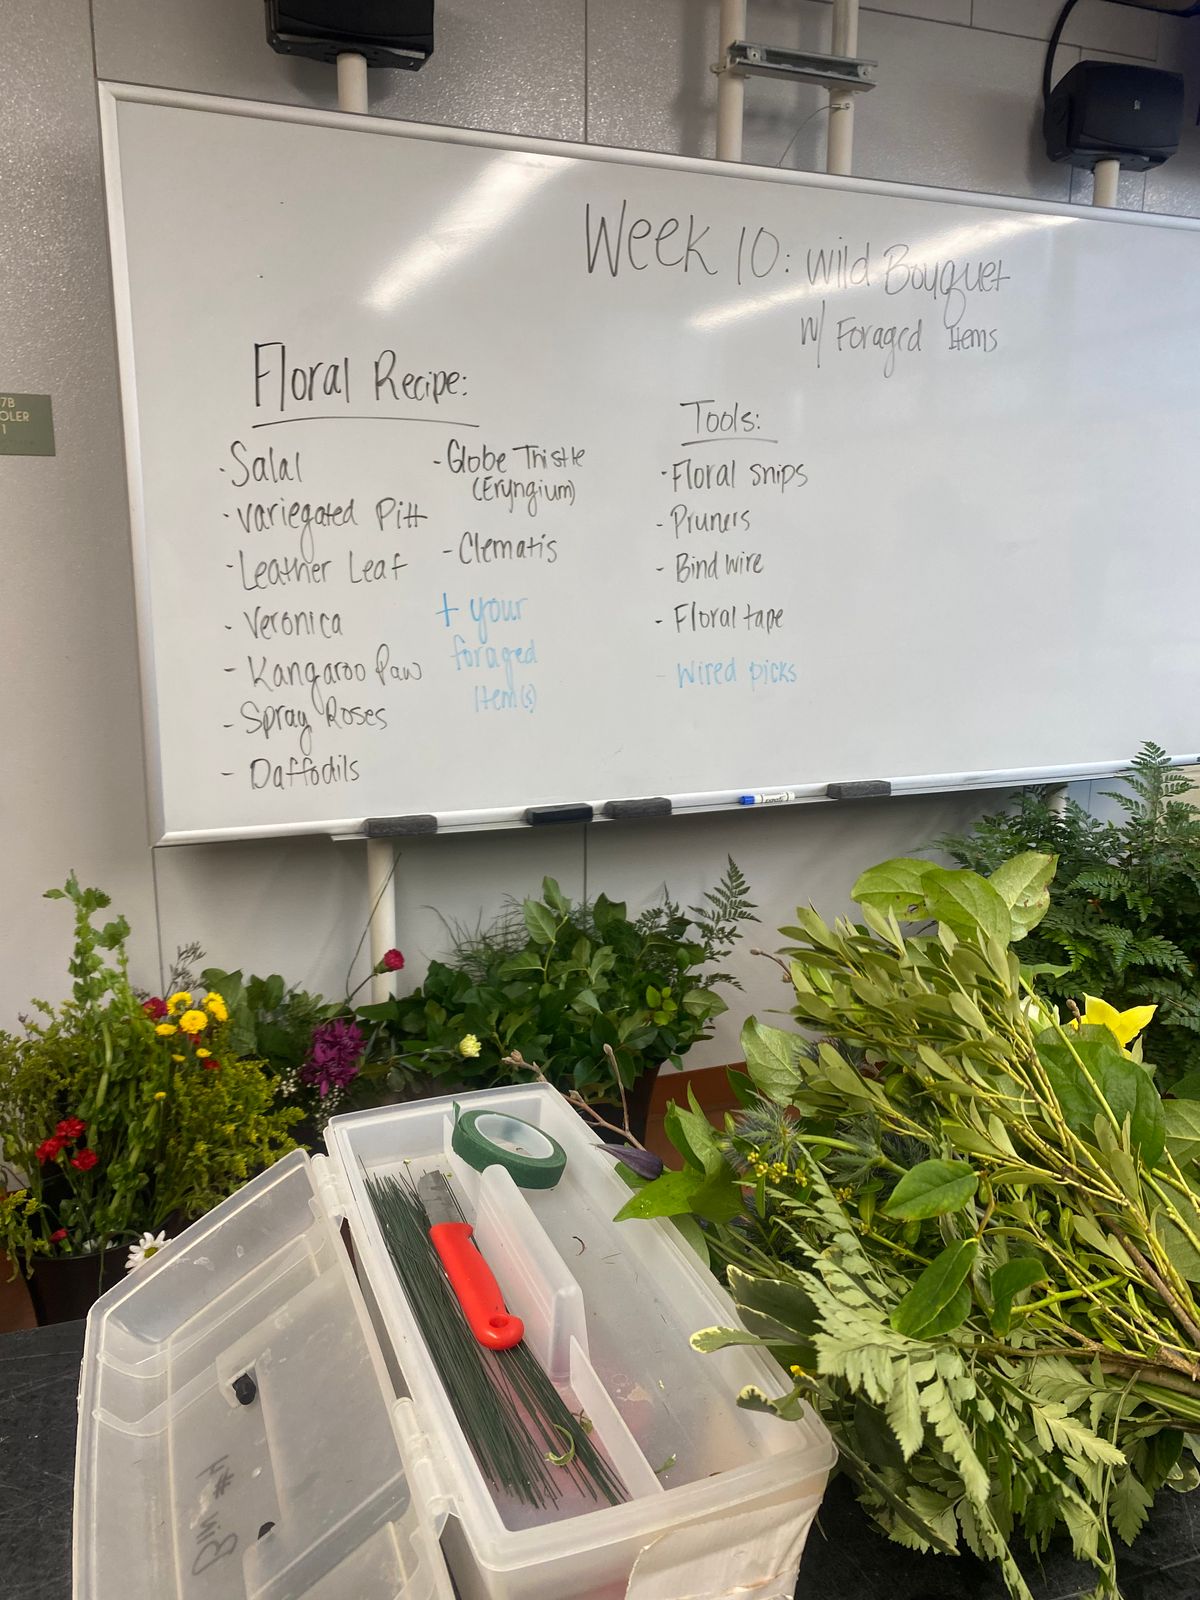 Week 10: Wild Bouquet
w/ Foraged Items
Floral Recipe:
- Salal
- Variegated Pitt
- Leather Leaf
- Veronica
- Kangaroo Paw
- Spray Roses
- Daffodils
- Globe Thistle
(Eryngium)
- Clematis
+ your
foraged
item(s)
Tools:
- Floral snips
- Pruners
- Bind wire
- Floral tape
- Wired picks
7B
OLER
1
Bin #4